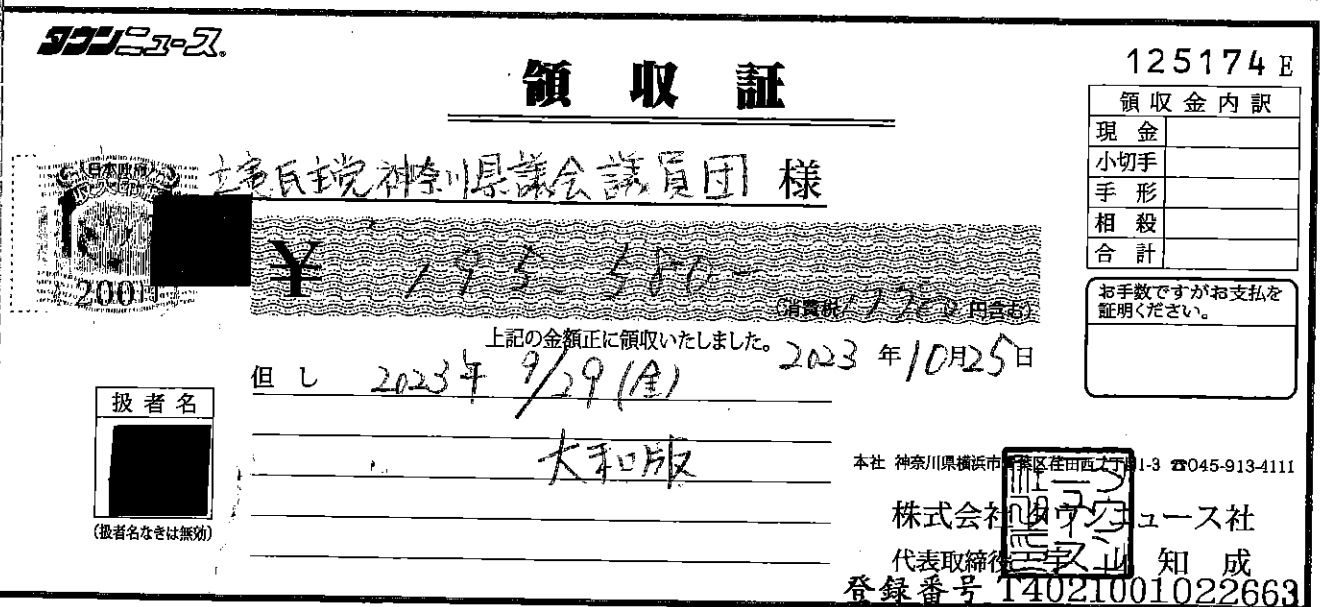 タウンニュース.
領収証
125174 E
領収金内訳
現金
小切手
手形
相殺
合計
お手数ですがお支払を
証明ください。
日本政府
200円
立憲民主党神奈川県議会議員団 様
¥ 195,580-
(消費税17780円含む)
上記の金額正に領収いたしました。
2023年10月25日
但し 2023年 9/29(金)
大和版
扱者名
(扱者名なきは無効)
本社 神奈川県横浜市青葉区荏田西2丁目1-3 ☎045-913-4111
株式会社タウンニュース社
代表取締役 宇山知成
登録番号 T4021001022663